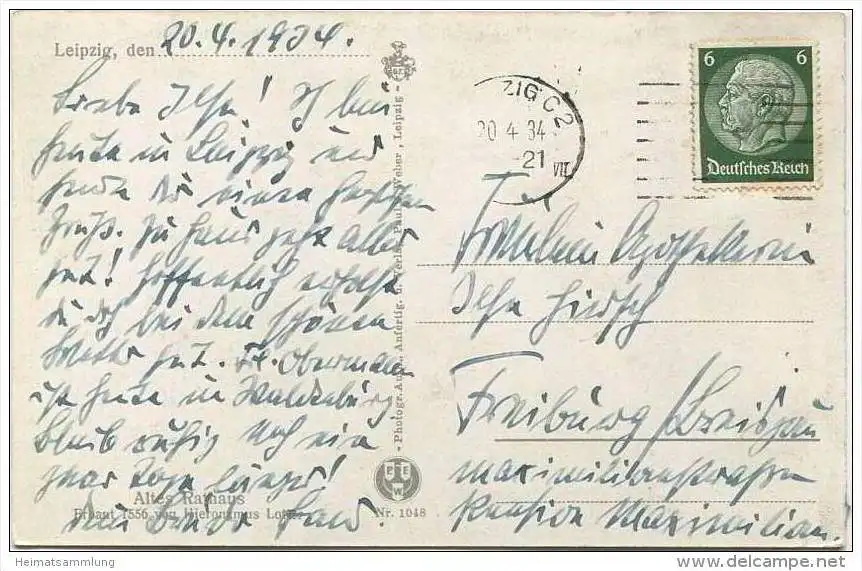 Leipzig, den 20.4.1934.
Liebe Ilse! Ich bin
heute in Leipzig und
sende dir einen herzlichen
Gruß. Zu Haus geht alles
gut! Hoffentlich erholst
du dich bei dem schönen
Wetter gut. Frl. Obermann
ist heute in Waldenburg
bleib ruhig noch ein
paar Tage länger!
dein
Altes Rathaus
Erbaut 1556 von Hieronymus Lotter
Nr. 1048
Photogr. Aufn., Anfertig. u. Verlag Paul Weber, Leipzig
ZIG C2
20.4.34
-21
VII
6 6
Deutsches Reich
Fräulein Apothekerin
Ilse Hirsch
Freiburg/Breisgau
Maximilianstraße
Pension Maximilian!
Heimatsammlung
www.delcampe.net